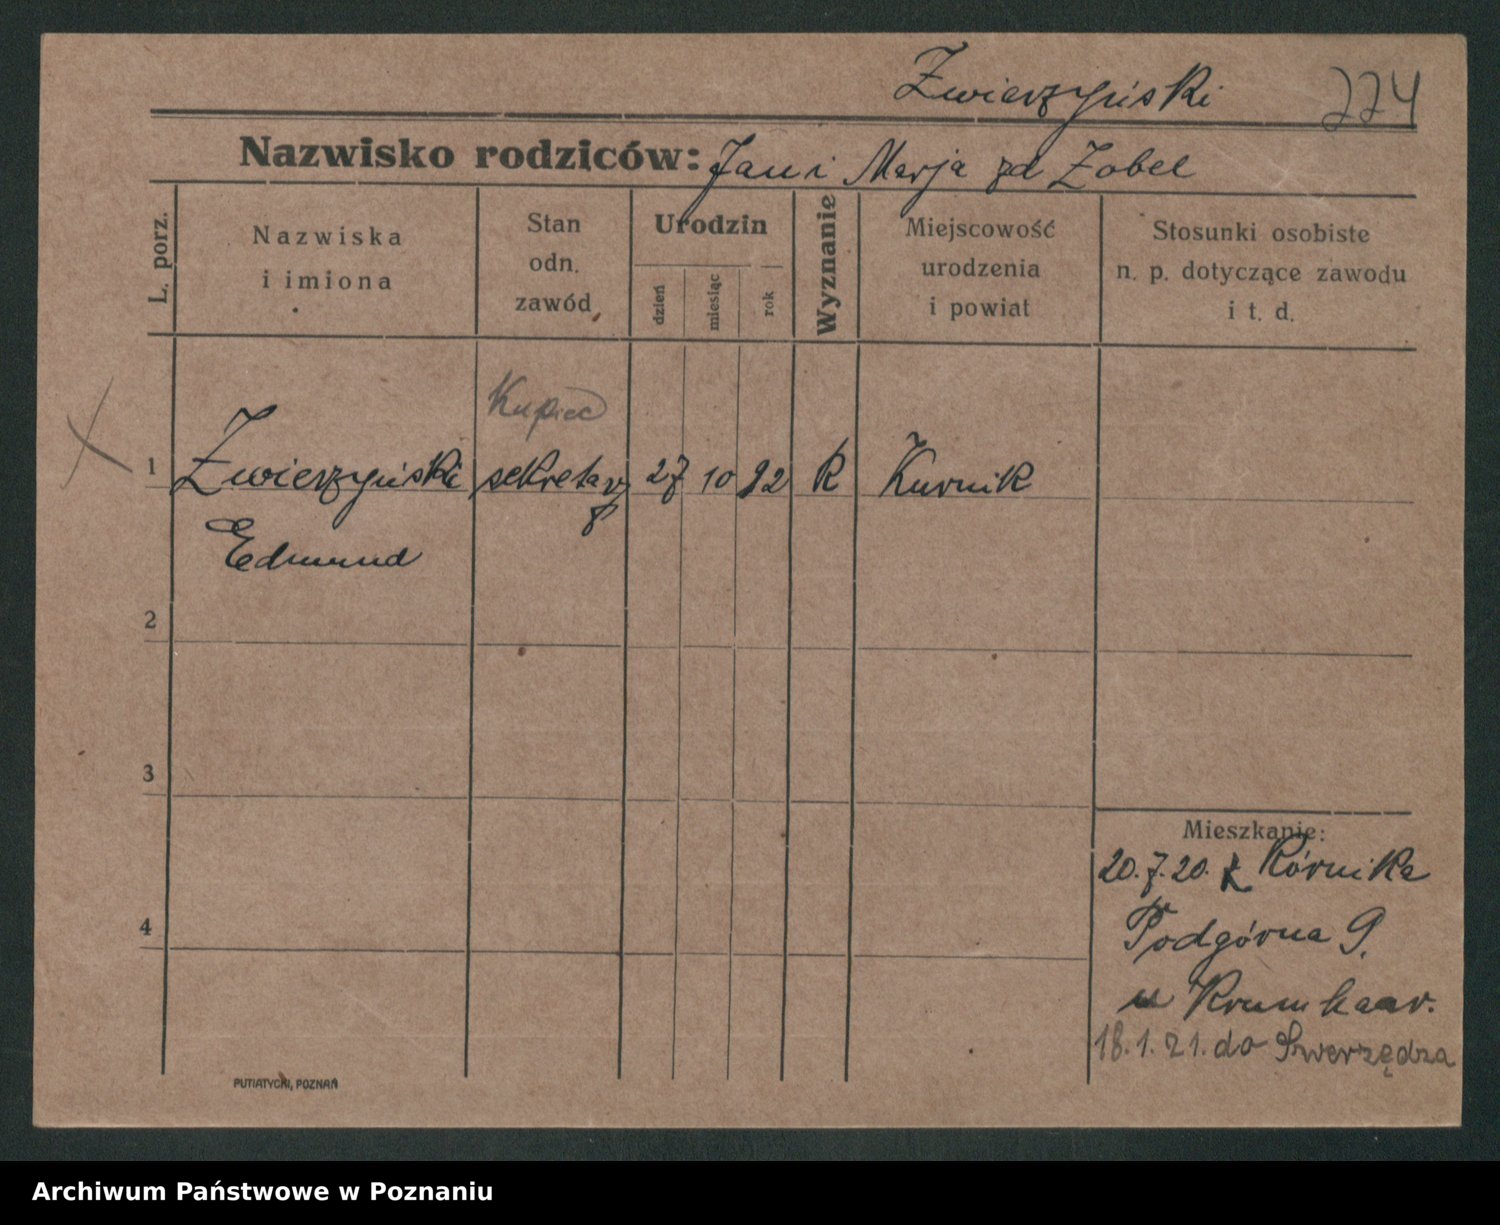 Zwierzyński 774
Nazwisko rodziców: Jan i Marja zd Zobel
L. porz.
Nazwiska
i imiona
Stan
odn.
zawód
Urodzin
dzień
miesiąc
rok
Wyznanie
Miejscowość
urodzenia
i powiat
Stosunki osobiste
n. p. dotyczące zawodu
i t. d.
Kupiec
1 Zwierzyński sekretarz 27 10 92 R Kurnik
Edmund
2
3
4
Mieszkanie:
20.7.20. z Kórnika
Podgórna 9.
u
18.1.21. do Swerzędza
PUTIATYCKI, POZNAŃ
Archiwum Państwowe w Poznaniu